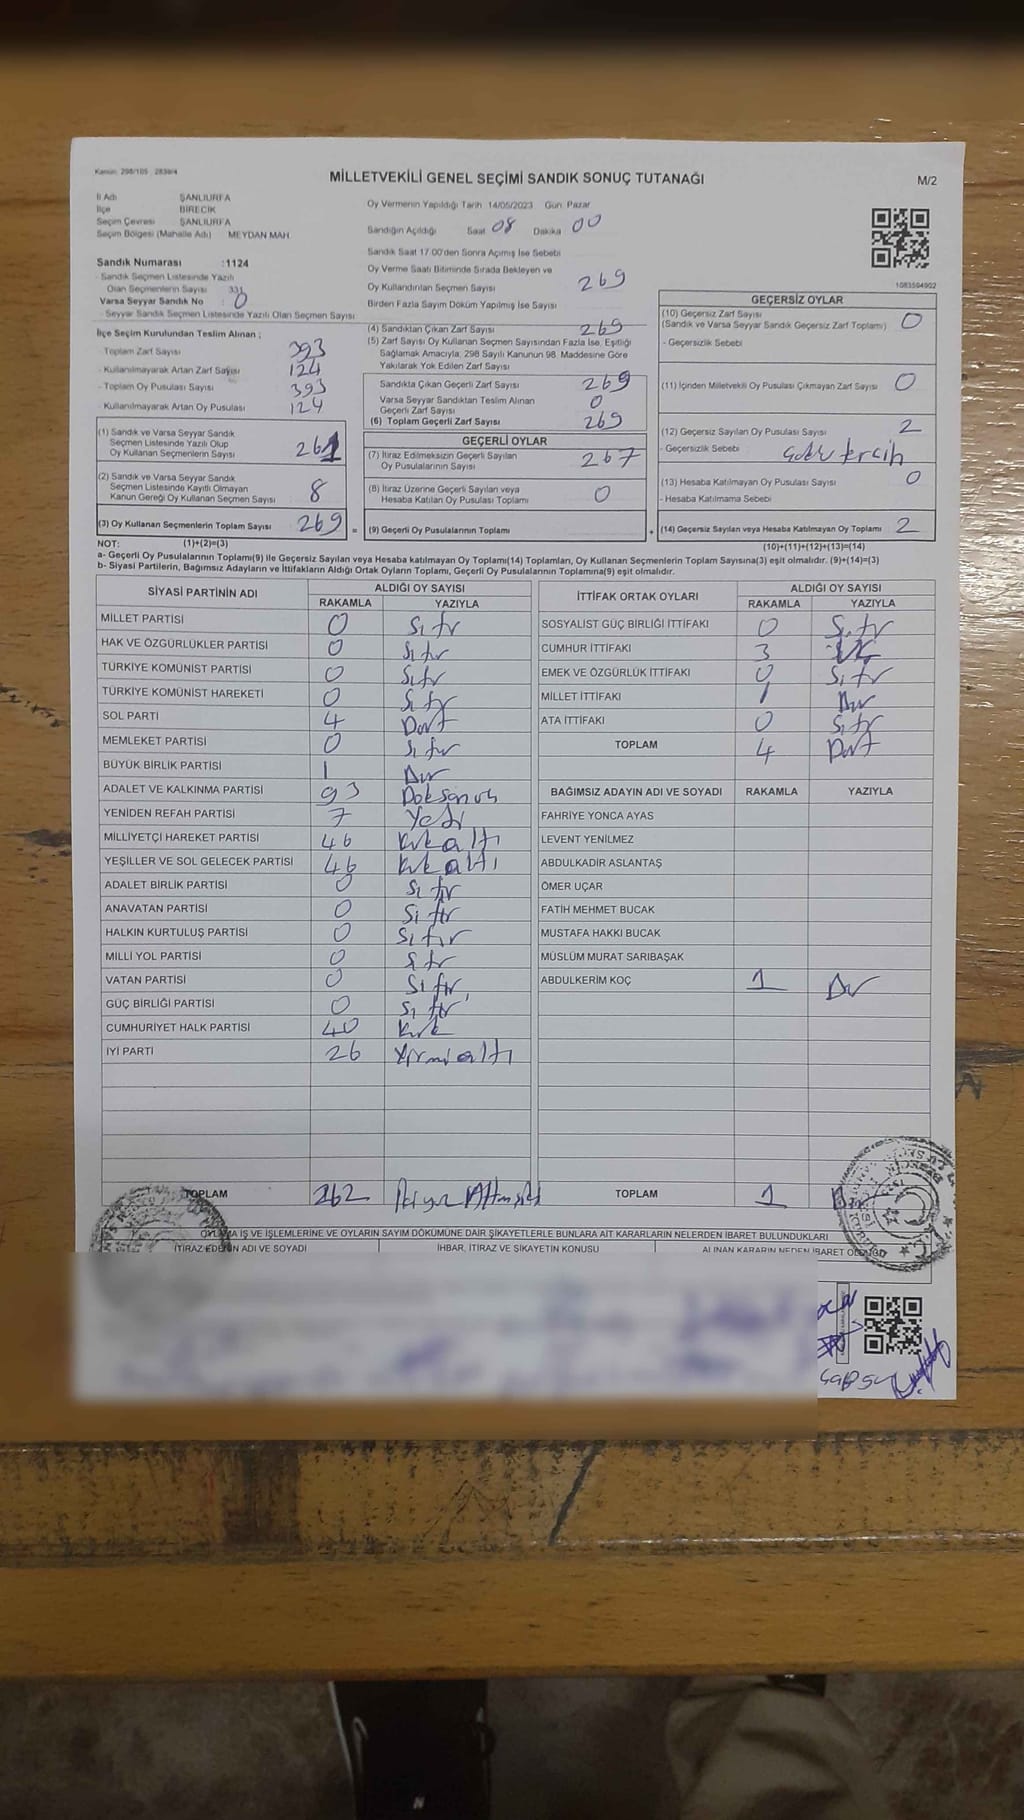 Kanun: 298/105 , 2839/4
MİLLETVEKİLİ GENEL SEÇİMİ SANDIK SONUÇ TUTANAĞI
M/2
İl Adı ŞANLIURFA
İlçe BİRECİK
Seçim Çevresi ŞANLIURFA
Seçim Bölgesi (Mahalle Adı) MEYDAN MAH.
Sandık Numarası :1124
- Sandık Seçmen Listesinde Yazılı
Olan Seçmenlerin Sayısı 331
Varsa Seyyar Sandık No : 0
- Seyyar Sandık Seçmen Listesinde Yazılı Olan Seçmen Sayısı:
İlçe Seçim Kurulundan Teslim Alınan ;
- Toplam Zarf Sayısı 393
- Kullanılmayarak Artan Zarf Sayısı 124
- Toplam Oy Pusulası Sayısı 393
- Kullanılmayarak Artan Oy Pusulası 124
(1) Sandık ve Varsa Seyyar Sandık
Seçmen Listesinde Yazılı Olup
Oy Kullanan Seçmenlerin Sayısı 261
(2) Sandık ve Varsa Seyyar Sandık
Seçmen Listesinde Kayıtlı Olmayan
Kanun Gereği Oy Kullanan Seçmen Sayısı 8
(3) Oy Kullanan Seçmenlerin Toplam Sayısı 269 =
Oy Vermenin Yapıldığı Tarih 14/05/2023 Gün: Pazar
Sandığın Açıldığı Saat 08 Dakika 00
Sandık Saat 17.00'den Sonra Açılmış İse Sebebi
Oy Verme Saati Bitiminde Sırada Bekleyen ve
Oy Kullandırılan Seçmen Sayısı 269
Birden Fazla Sayım Döküm Yapılmış İse Sayısı
(4) Sandıktan Çıkan Zarf Sayısı 269
(5) Zarf Sayısı Oy Kullanan Seçmen Sayısından Fazla İse, Eşitliği
Sağlamak Amacıyla, 298 Sayılı Kanunun 98. Maddesine Göre
Yakılarak Yok Edilen Zarf Sayısı
Sandıkta Çıkan Geçerli Zarf Sayısı 269
Varsa Seyyar Sandıktan Teslim Alınan
Geçerli Zarf Sayısı 0
(6) Toplam Geçerli Zarf Sayısı 269
GEÇERLİ OYLAR
(7) İtiraz Edilmeksizin Geçerli Sayılan
Oy Pusulalarının Sayısı 267
(8) İtiraz Üzerine Geçerli Sayılan veya
Hesaba Katılan Oy Pusulası Toplamı 0
(9) Geçerli Oy Pusulalarının Toplamı +
1083594902
GEÇERSİZ OYLAR
(10) Geçersiz Zarf Sayısı
(Sandık ve Varsa Seyyar Sandık Geçersiz Zarf Toplamı) 0
- Geçersizlik Sebebi
(11) İçinden Milletvekili Oy Pusulası Çıkmayan Zarf Sayısı 0
(12) Geçersiz Sayılan Oy Pusulası Sayısı 2
- Geçersizlik Sebebi
(13) Hesaba Katılmayan Oy Pusulası Sayısı 0
- Hesaba Katılmama Sebebi
(14) Geçersiz Sayılan veya Hesaba Katılmayan Oy Toplamı 2
NOT: (1)+(2)=(3) (10)+(11)+(12)+(13)=(14)
a- Geçerli Oy Pusulalarının Toplamı(9) ile Geçersiz Sayılan veya Hesaba katılmayan Oy Toplamı(14) Toplamları, Oy Kullanan Seçmenlerin Toplam Sayısına(3) eşit olmalıdır. (9)+(14)=(3)
b- Siyasi Partilerin, Bağımsız Adayların ve İttifakların Aldığı Ortak Oyların Toplamı, Geçerli Oy Pusulalarının Toplamına(9) eşit olmalıdır.
SİYASİ PARTİNİN ADI ALDIĞI OY SAYISI
RAKAMLA YAZIYLA
MİLLET PARTİSİ 0 Sıfır
HAK VE ÖZGÜRLÜKLER PARTİSİ 0 Sıfır
TÜRKİYE KOMÜNİST PARTİSİ 0 Sıfır
TÜRKİYE KOMÜNİST HAREKETİ 0 Sıfır
SOL PARTİ 4 Dört
MEMLEKET PARTİSİ 0 Sıfır
BÜYÜK BİRLİK PARTİSİ 1 Bir
ADALET VE KALKINMA PARTİSİ 93 Doksanüç
YENİDEN REFAH PARTİSİ 7 Yedi
MİLLİYETÇİ HAREKET PARTİSİ 46 Kırkaltı
YEŞİLLER VE SOL GELECEK PARTİSİ 46 Kırkaltı
ADALET BİRLİK PARTİSİ 0 Sıfır
ANAVATAN PARTİSİ 0 Sıfır
HALKIN KURTULUŞ PARTİSİ 0 Sıfır
MİLLİ YOL PARTİSİ 0 Sıfır
VATAN PARTİSİ 0 Sıfır
GÜÇ BİRLİĞİ PARTİSİ 0 Sıfır
CUMHURİYET HALK PARTİSİ 40 Kırk
İYİ PARTİ 26 Yirmialtı
TOPLAM 262
İTTİFAK ORTAK OYLARI ALDIĞI OY SAYISI
RAKAMLA YAZIYLA
SOSYALİST GÜÇ BİRLİĞİ İTTİFAKI 0 Sıfır
CUMHUR İTTİFAKI 3 Üç
EMEK VE ÖZGÜRLÜK İTTİFAKI 0 Sıfır
MİLLET İTTİFAKI 1 Bir
ATA İTTİFAKI 0 Sıfır
TOPLAM 4 Dört
BAĞIMSIZ ADAYIN ADI VE SOYADI RAKAMLA YAZIYLA
FAHRİYE YONCA AYAS
LEVENT YENİLMEZ
ABDULKADİR ASLANTAŞ
ÖMER UÇAR
FATİH MEHMET BUCAK
MUSTAFA HAKKI BUCAK
MÜSLÜM MURAT SARIBAŞAK
ABDULKERİM KOÇ 1 Bir
TOPLAM 1 Bir
OYLAMA İŞ VE İŞLEMLERİNE VE OYLARIN SAYIM DÖKÜMÜNE DAİR ŞİKAYETLERLE BUNLARA AİT KARARLARIN NELERDEN İBARET BULUNDUKLARI
İTİRAZ EDENİN ADI VE SOYADI İHBAR, İTİRAZ VE ŞİKAYETİN KONUSU ALINAN KARARIN NEDEN İBARET OLDUĞU